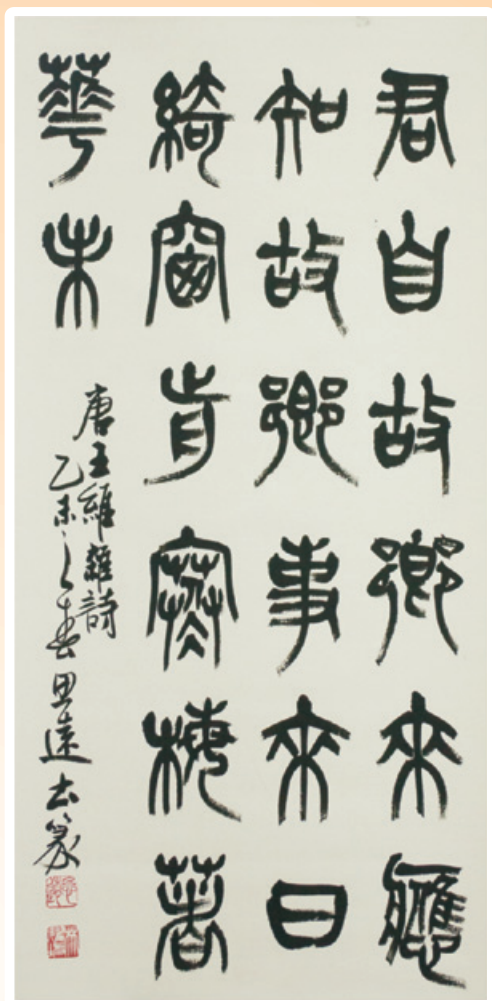 君自故鄉來應
知故鄉事來日
綺窗前寒梅著
華未
唐王維雜詩
乙未之春思遠書篆